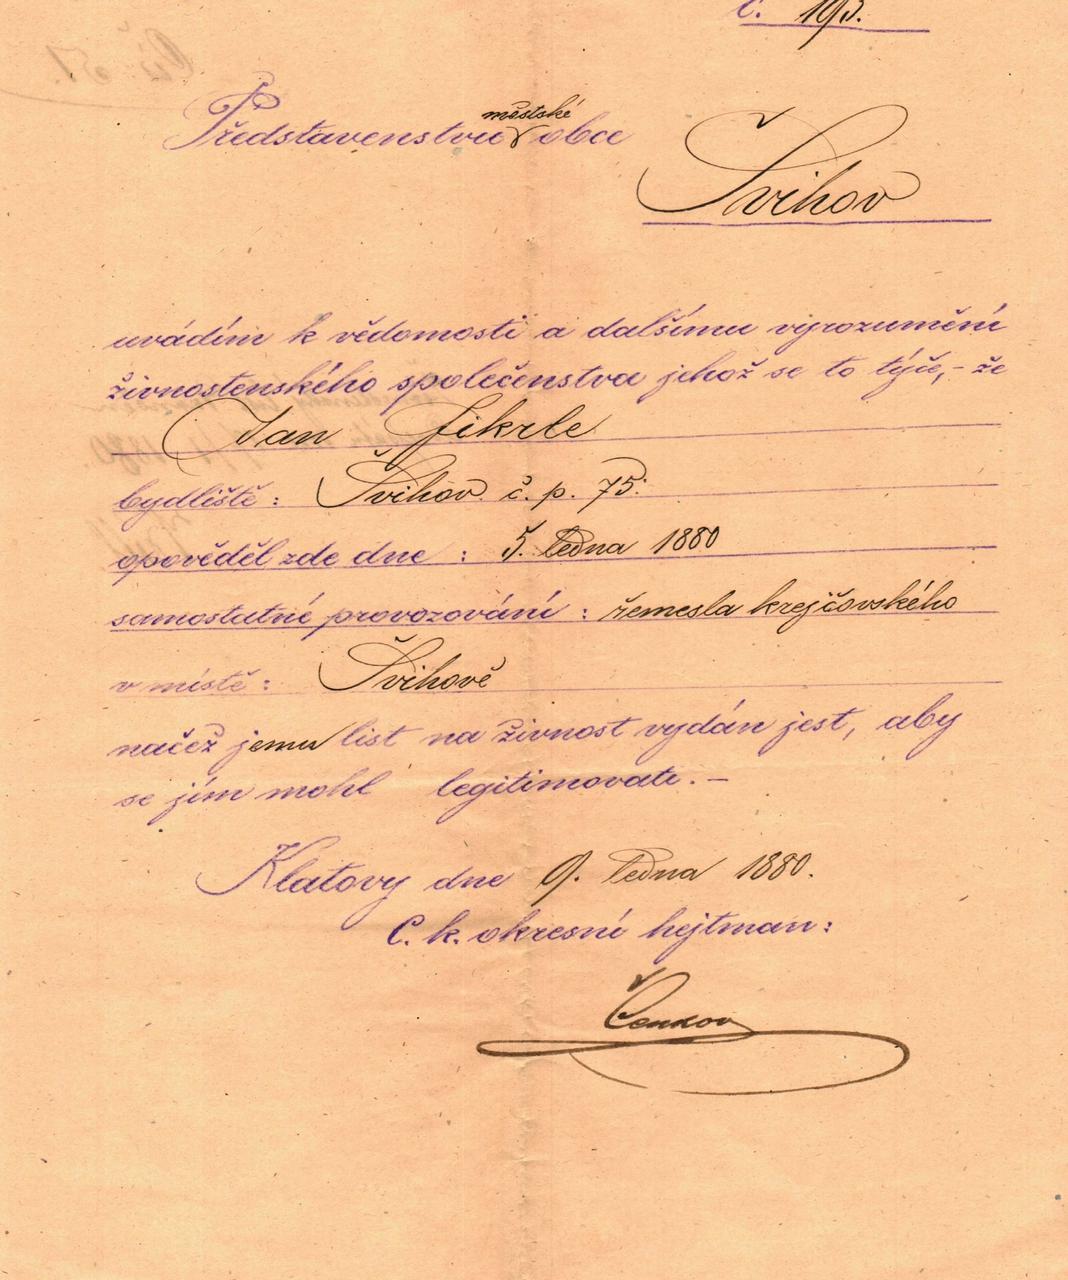 č. 193.
Představenstvu městské obce
Švihov
uvádím k vědomosti a dalšímu vyrozumění
živnostenského společenstva jehož se to týče,- že
Jan Fikrle
bydliště: Švihov č. p. 75.
opověděl zde dne: 5. ledna 1880
samostatné provozování: řemesla krejčovského
v místě: Švihově
načež jemu list na živnost vydán jest, aby
se jím mohl legitimovati.-
Klatovy dne 9. ledna 1880.
C. k. okresní hejtman: